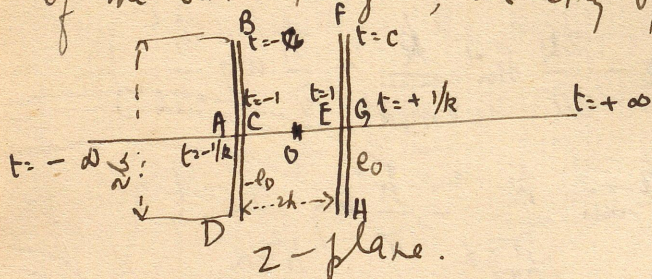 of the
B F
t=- t=c
t=-1 t=1
A C E G t=+1/k t=+∞
t=-∞ t=-1/k O
-e₀ e₀
2h
D H
z-plane.